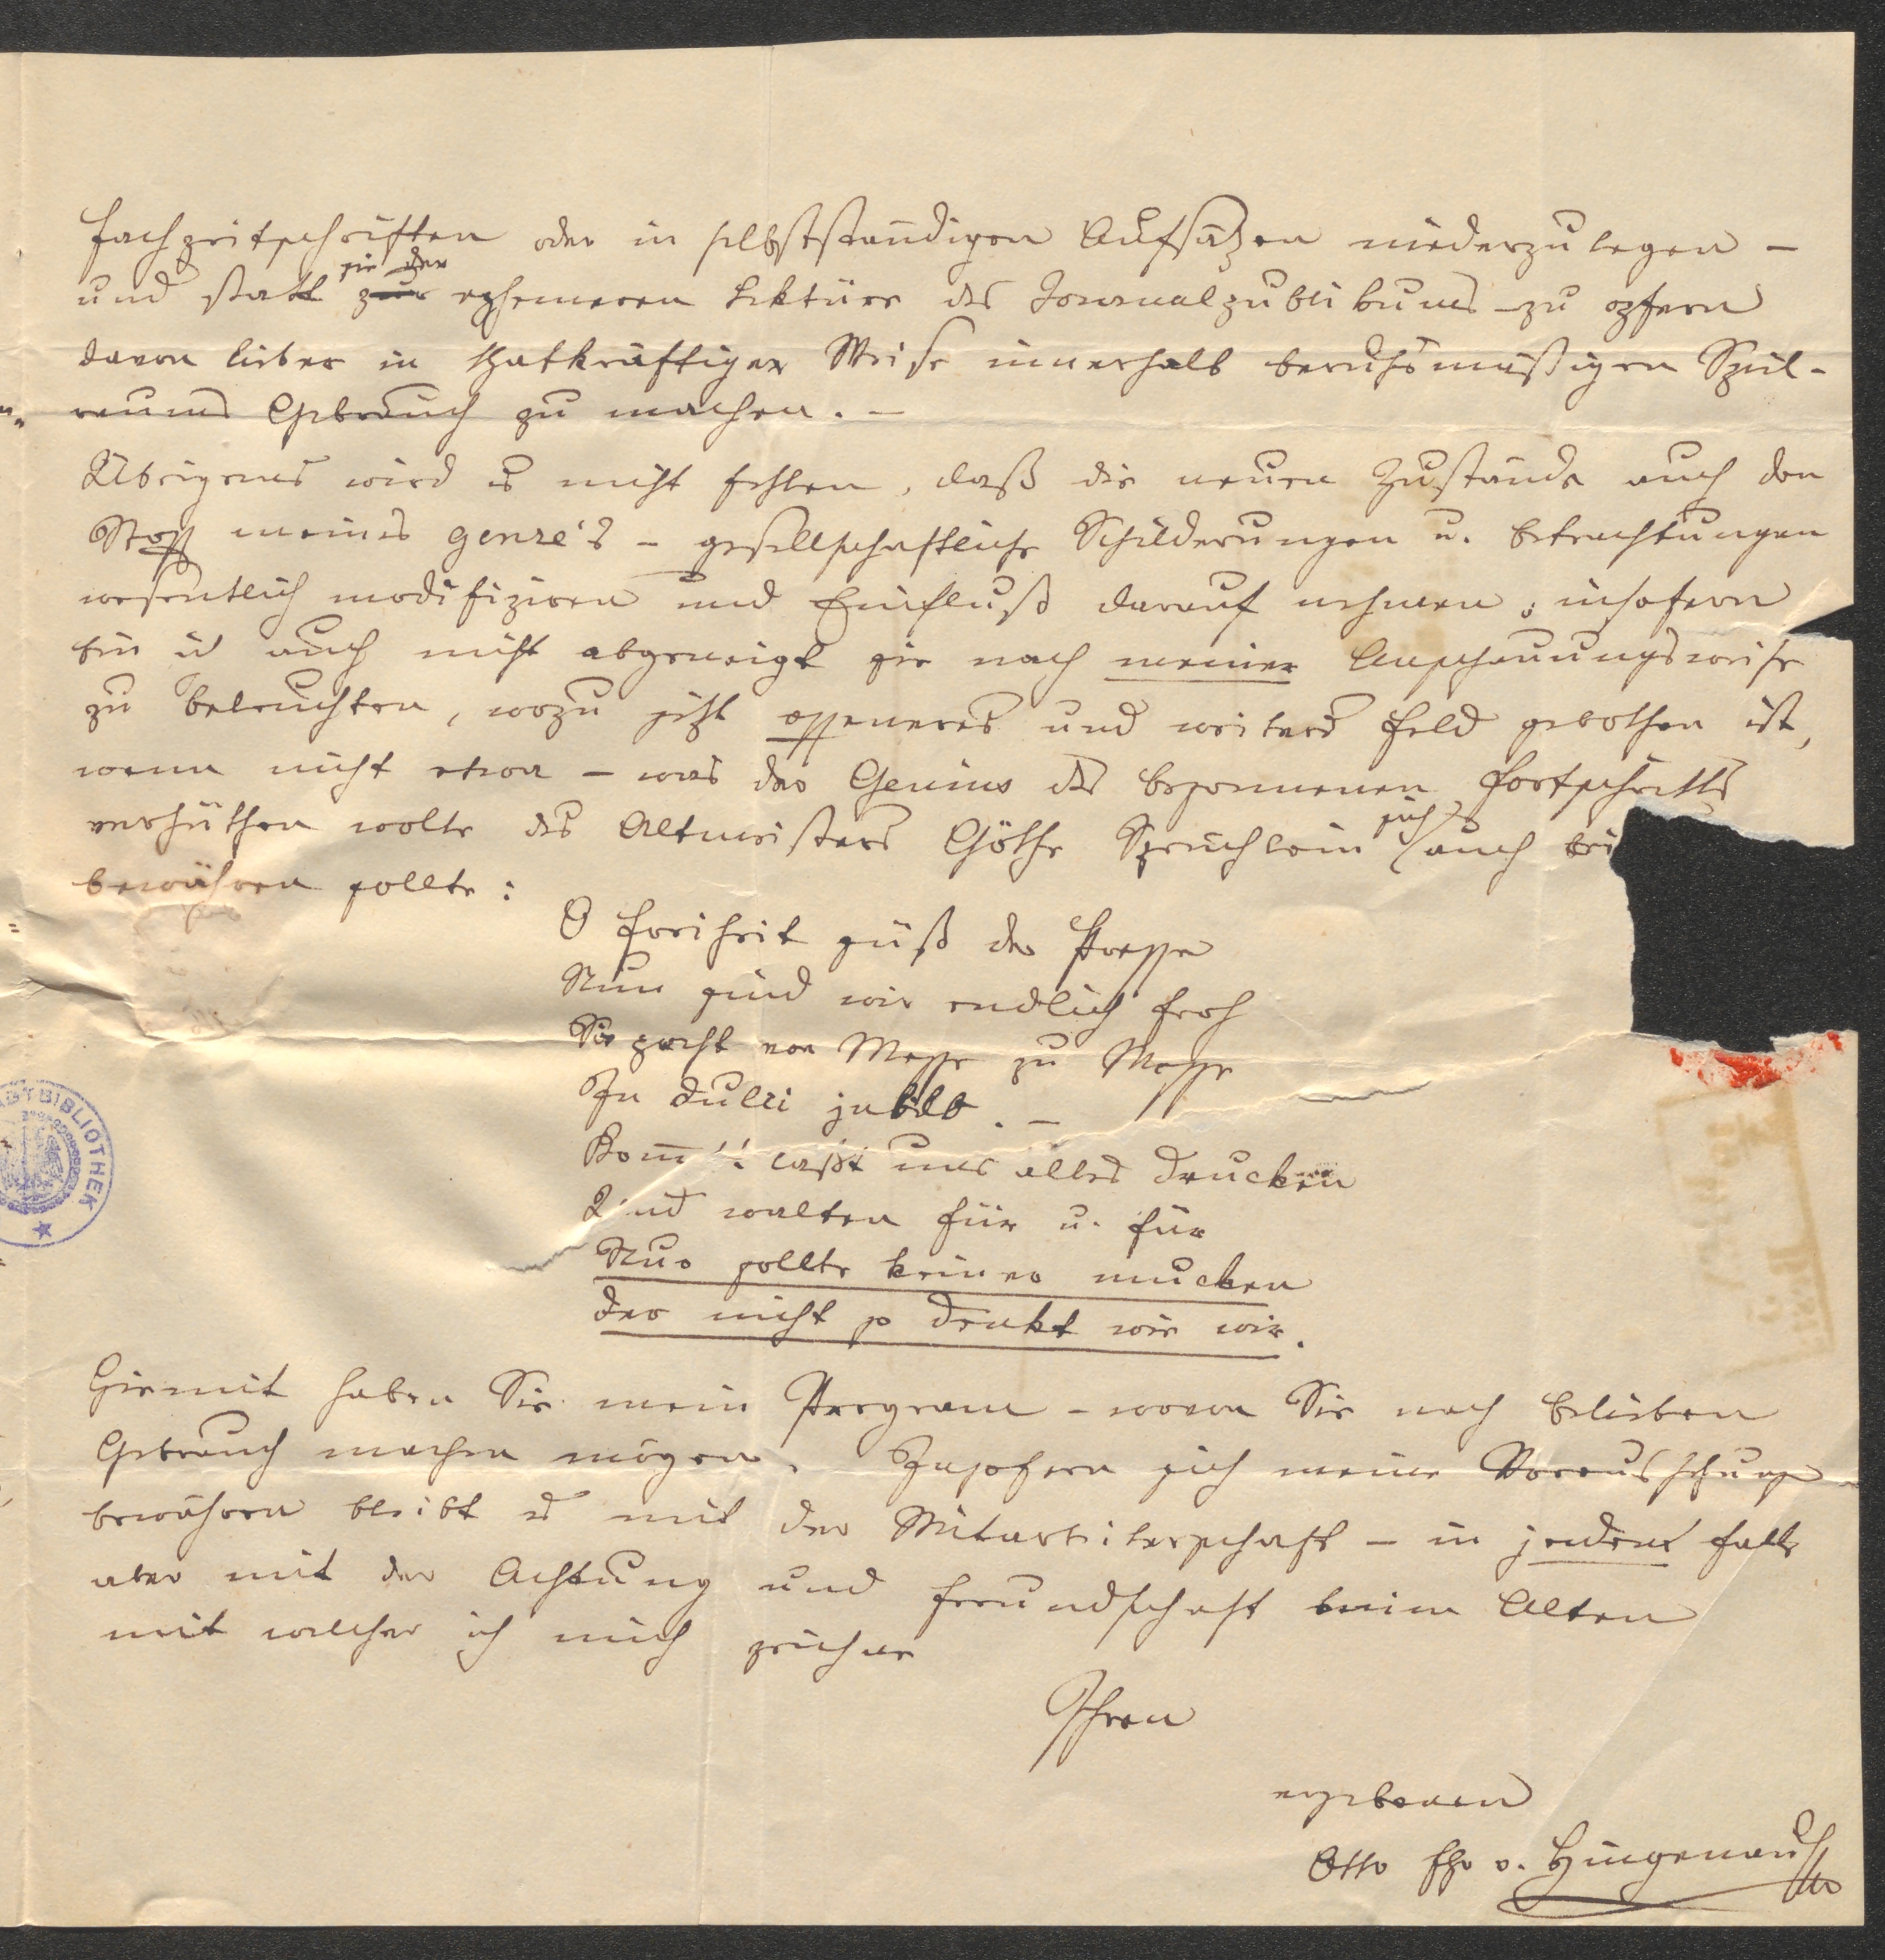 Fachzeitschriften oder in selbstständigen Aufsätzen niederzulegen –
und statt sie der ephemeren Lektüre des Journalpublikums zu opfern
davon lieber in thatkräftiger Weise innerhalb berufsmäßigen Spiel-
raums Gebrauch zu machen. –
Übrigens wird es nicht fehlen, daß die neuen Zustände auch den
Stoff meines genre's – gesellschaftliche Schilderungen u. Betrachtungen
wesentlich modifiziren und Einfluß darauf nehmen; insofern
bin ich auch nicht abgeneigt sie nach meiner Anschauungsweise
zu beleuchten, wozu jetzt offeneres und weiteres Feld gebothen ist,
wenn nicht etwa – was der Genius des besonnenen Fortschritts
verhüthen wolle des Altmeisters Göthe Sprüchlein sich auch bei
bewähren sollte:
O Freiheit süß der Presse
Nun sind wir endlich froh
Sie pocht von Messe zu Messe
In dulci jubilo. –
Kom̄t! laßt uns alles drucken
Und walten für u. für
Nur sollte keiner mucken
der nicht so denkt wie wir.
Hiemit haben Sie mein Program – wovon Sie nach Belieben
Gebrauch machen mögen. Insofern sich meine Voraussetzungen
bewähren bleibt es mit der Mitarbeiterschaft – in jedem Falle
aber mit der Achtung und Freundschaft beim Alten
mit welcher ich mich zeichne
Ihren
ergebenen
Otto Fhr v. Hingenau
STADTBIBLIOTHEK